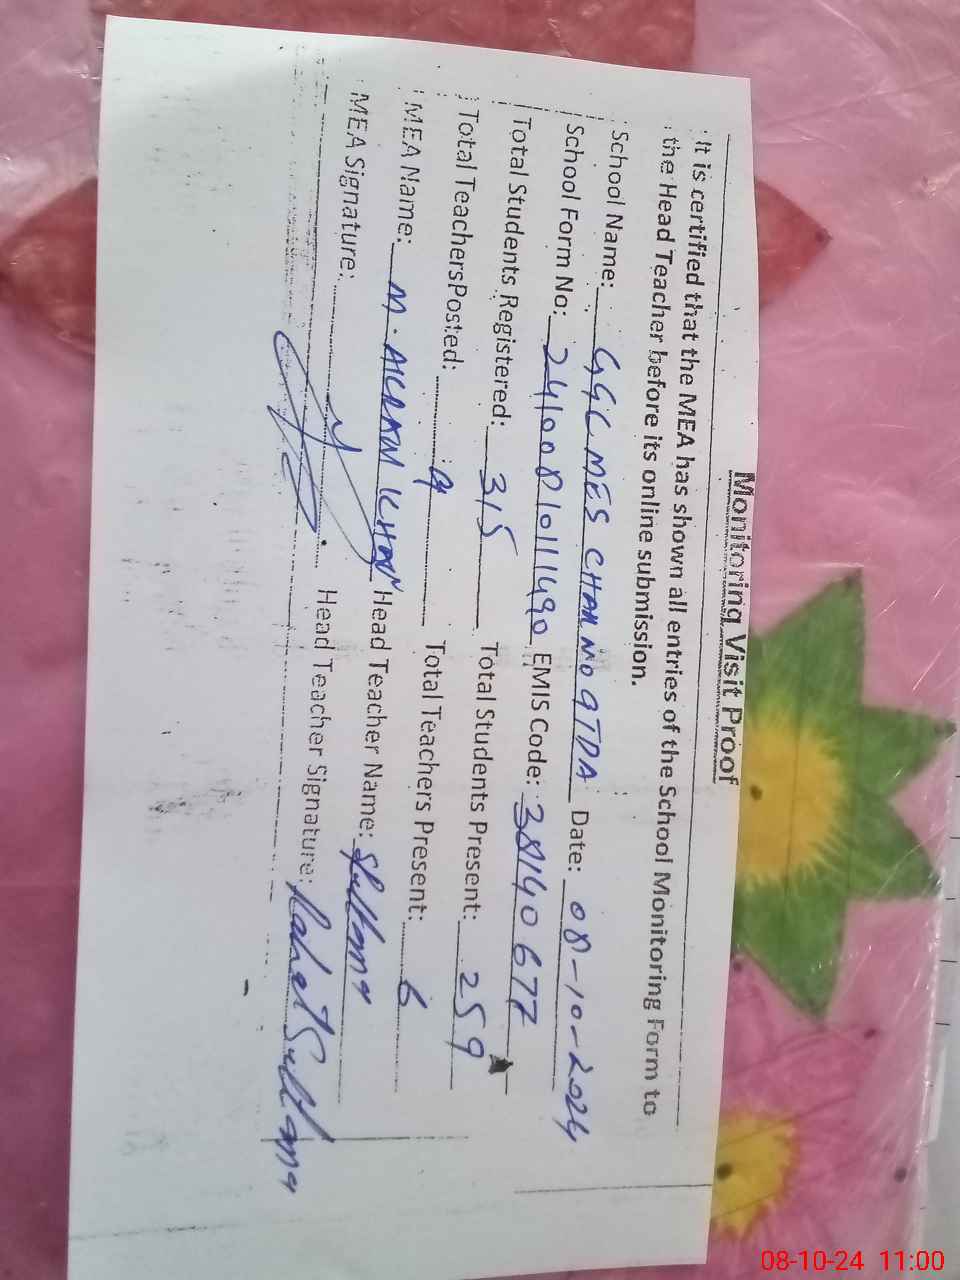 Monitoring Visit Proof
It is certified that the MEA has shown all entries of the School Monitoring Form to
the Head Teacher before its online submission.
School Name: GGCMES CHAK NO 9TDA Date: 08-10-2024
School Form No: EMIS Code:
Total Students Registered: 315 Total Students Present: 259
Total Teachers Posted: 9 Total Teachers Present: 6
MEA Name: M. AKRAM KHAN Head Teacher Name:
MEA Signature: Head Teacher Signature: Rahat Sultana
08-10-24 11:00